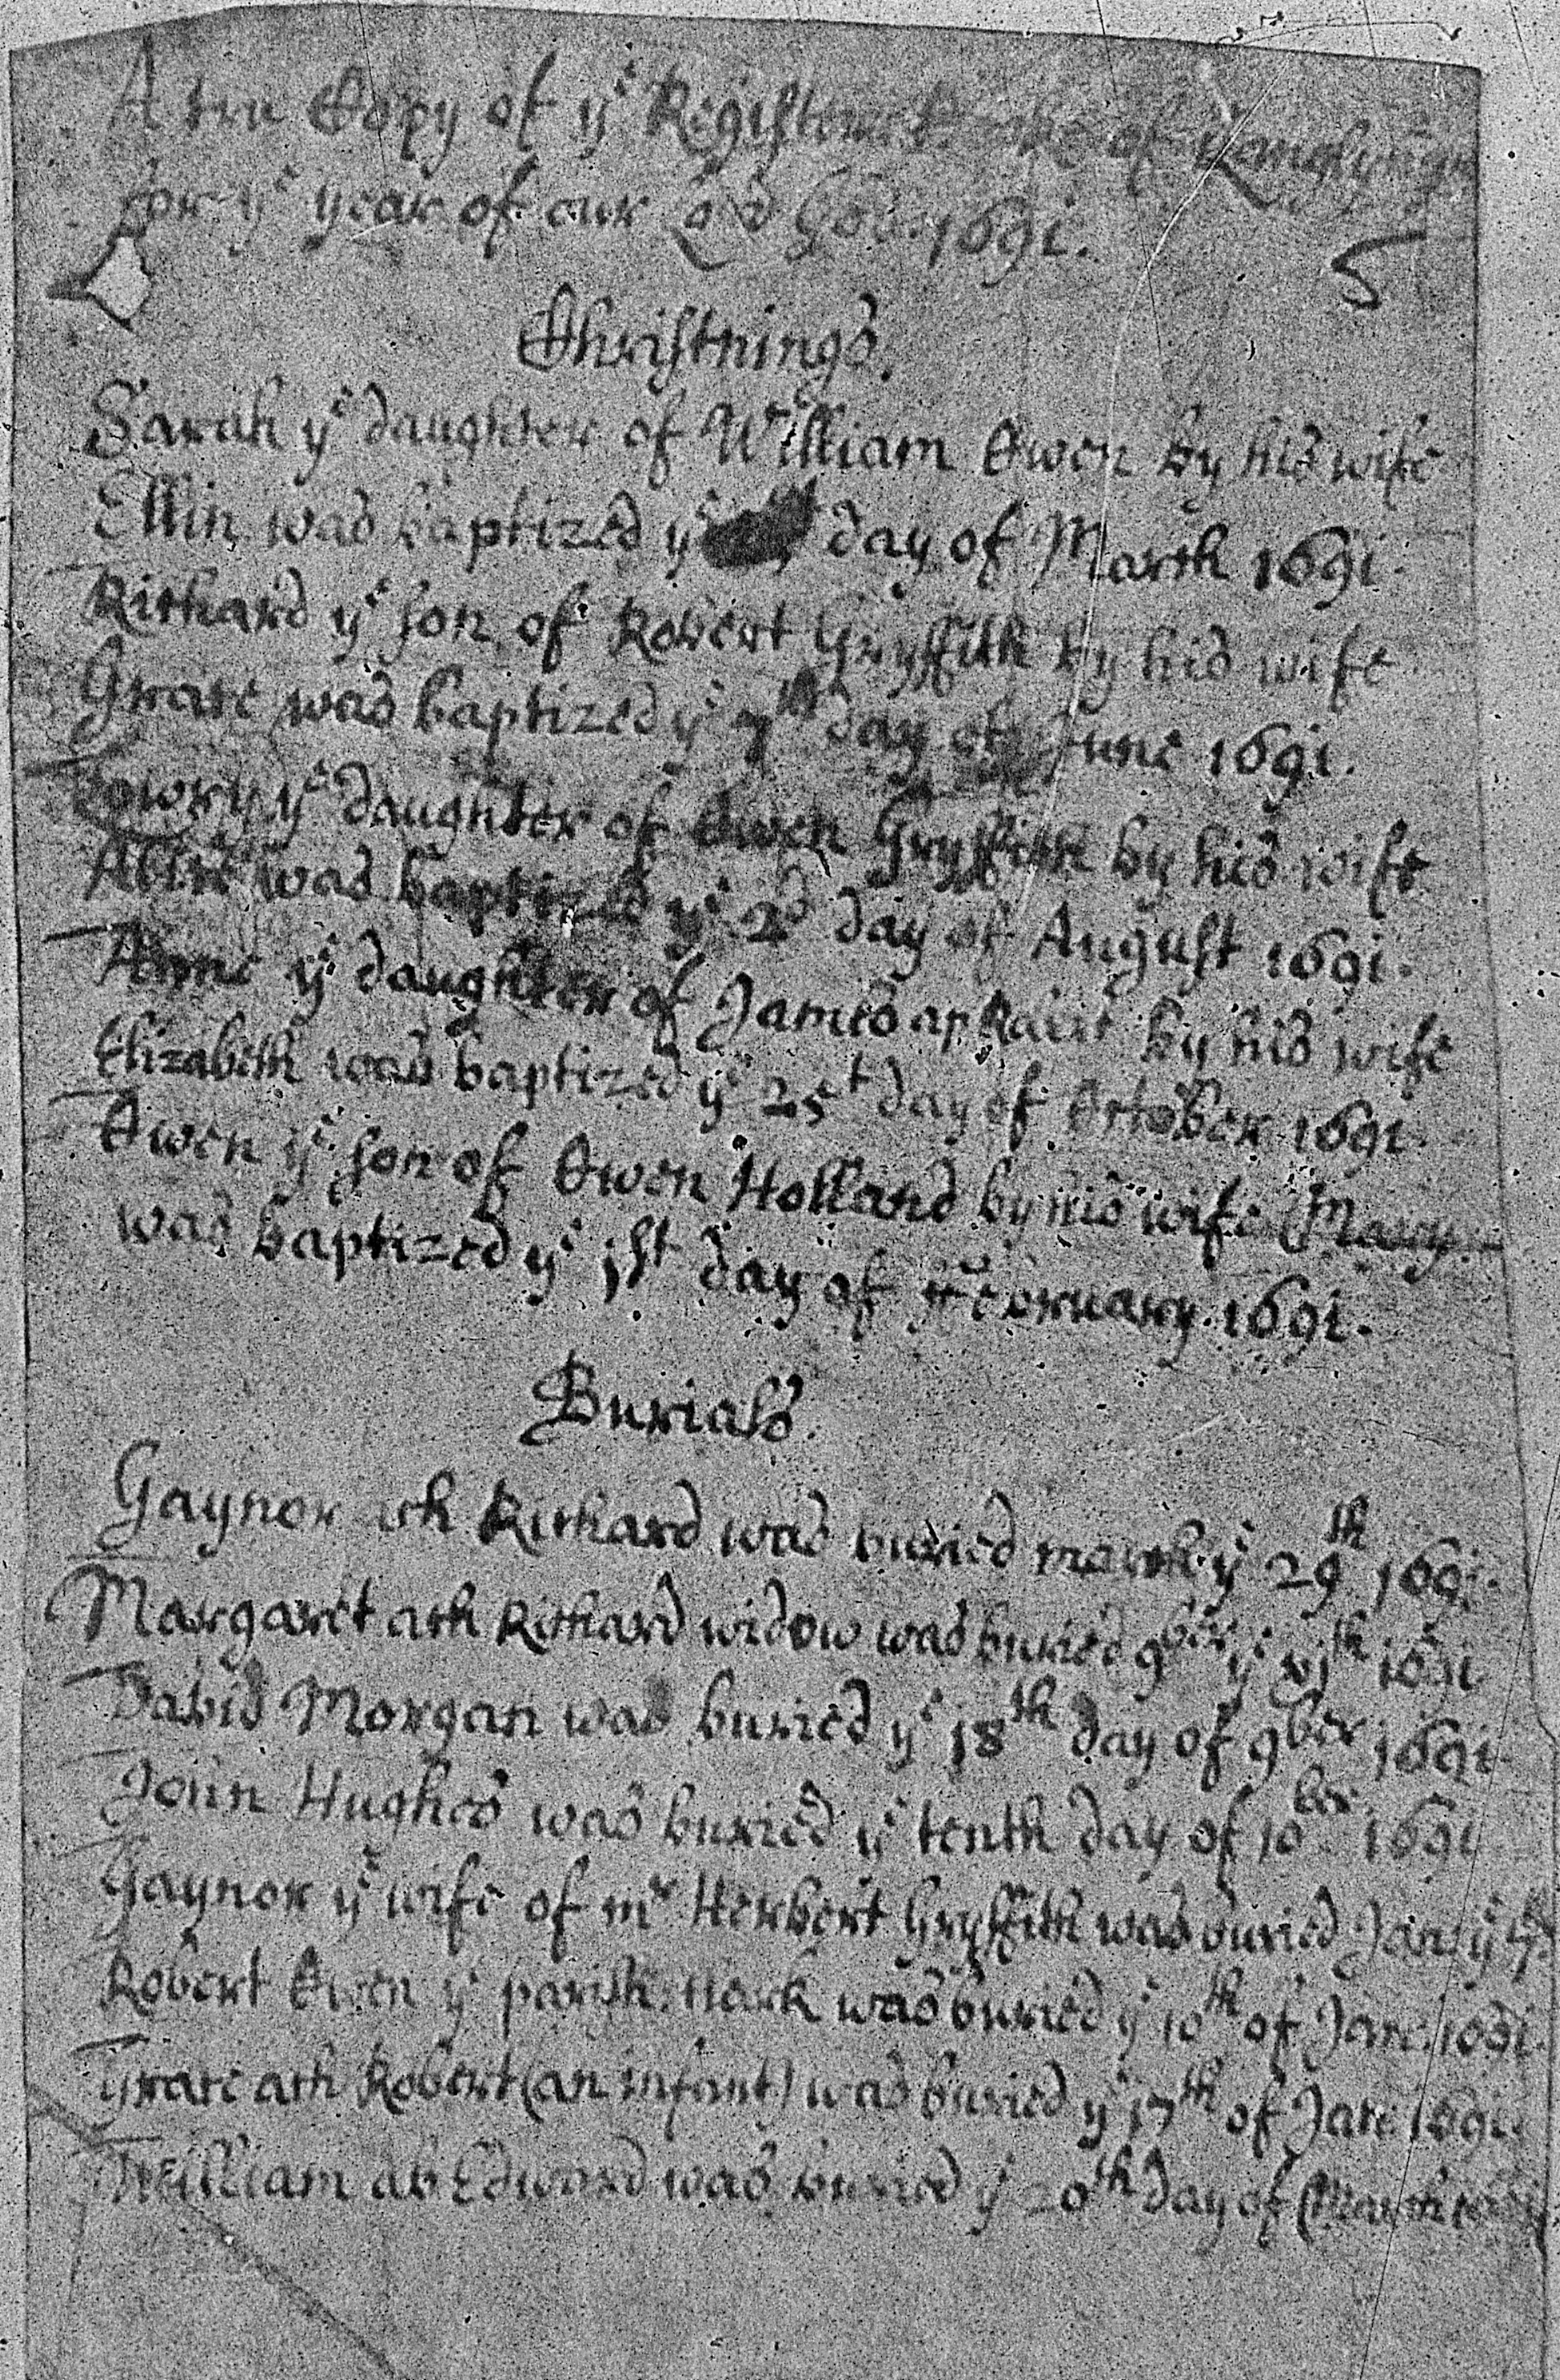 A true Copy of yᵉ Register of
for yᵉ year of our Ld God 1691.
5
Christnings.
Sarah yᵉ daughter of William Owen by his wife
Ellin was baptized yᵉ day of March 1691.
Richard yᵉ son of Robert Gryffith by his wife
Grace was baptized yᵉ 7th day of June 1691.
Lowry yᵉ daughter of Owen Gryffith by his wife
was baptized yᵉ 2d day of August 1691.
Anne yᵉ daughter of James ap by his wife
Elizabeth was baptized yᵉ 25t day of October 1691.
Owen yᵉ son of Owen Holland by his wife Mary
was baptized yᵉ jst day of ffebruary 1691.
Burials.
Gaynor ych Richard was buried march yᵉ 29th 1691.
Margaret ach Richard widow was buried 9ber yᵉ 1691
David Morgan was buried yᵉ 18th day of 9ber 1691.
John Hughes was buried yᵉ tenth day of 10ber 1691
Gaynor yᵉ wife of mr Herbert Gryffith was buried Jan: yᵉ
Robert Owen yᵉ parish clark was buried yᵉ 10th of Jan: 1691.
Grace ach Robert (an infant) was buried yᵉ 17th of Jan: 1691.
William ab Edward was buried yᵉ 20th day of March